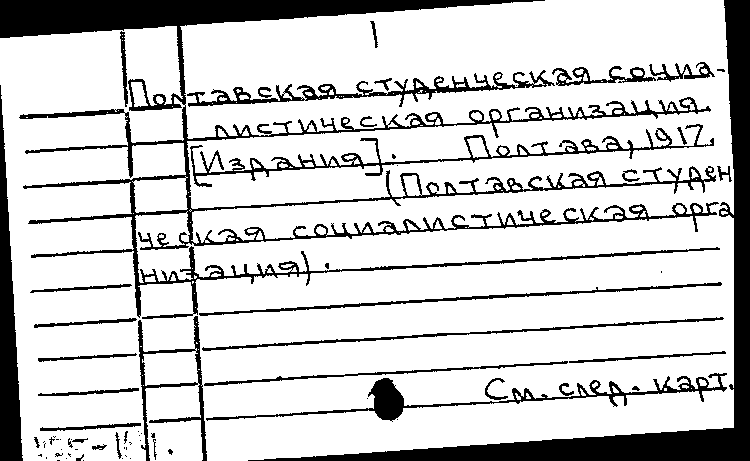 1
Полтавская студенческая социа-
листическая организация.
[Издания]. Полтава, 1917.
(Полтавская студен
ческая социалистическая орга
низация).
См. след. карт.